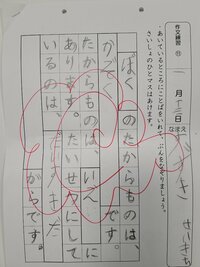 作文練習⑪
一月十三日 なまえ
あいているところにことばをいれて、ぶんをなぞりましょう。
さいしょのひとマスはあけます。
ぼくのたからものは、
かぞくです。
たからものは、いえに
あります。たいせつにして
いるのは、だいすきだ
からです。